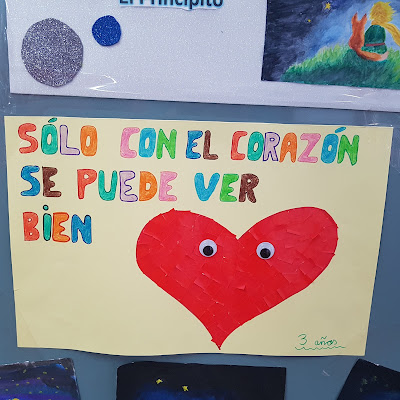 El Principito
SÓLO CON EL CORAZÓN
SE PUEDE VER
BIEN
3 años